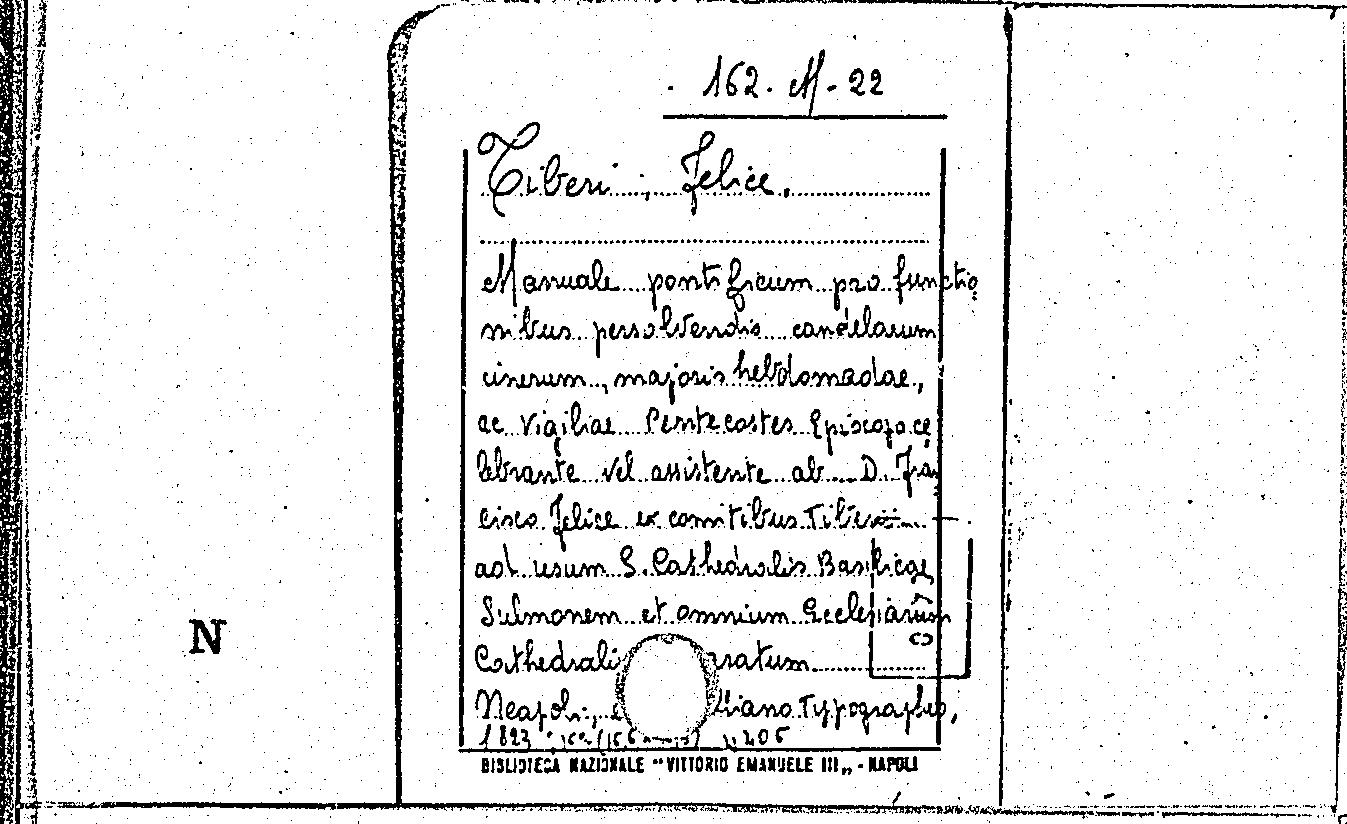 . 162. M - 22
Tiberi, Felice.
Manuale pontificum pro functio
nibus persolvendis candelarum
cinerum, majoris hebdomadae,
ac Vigiliae Pentecostes Episcopo ce
lebrante vel assistente ab D. Fran
cisco Felice ex comitibus Tiberii
ad usum S. Cathedralis Basilicae
Sulmonem et omnium Ecclesiarum
Cathedrali ratum
Neapoli, Typographeo,
1823
BIBLIOTECA NAZIONALE "VITTORIO EMANUELE III„ - NAPOLI
N